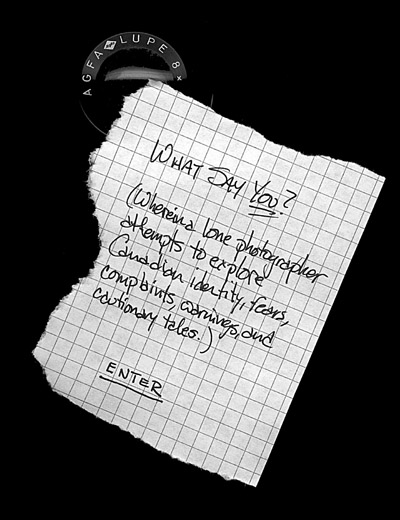 AGFA LUPE 8x
WHAT SAY YOU?
(Wherein a lone photographer
attempts to explore
Canadian identity, fears,
complaints, warnings, and
cautionary tales.)
ENTER